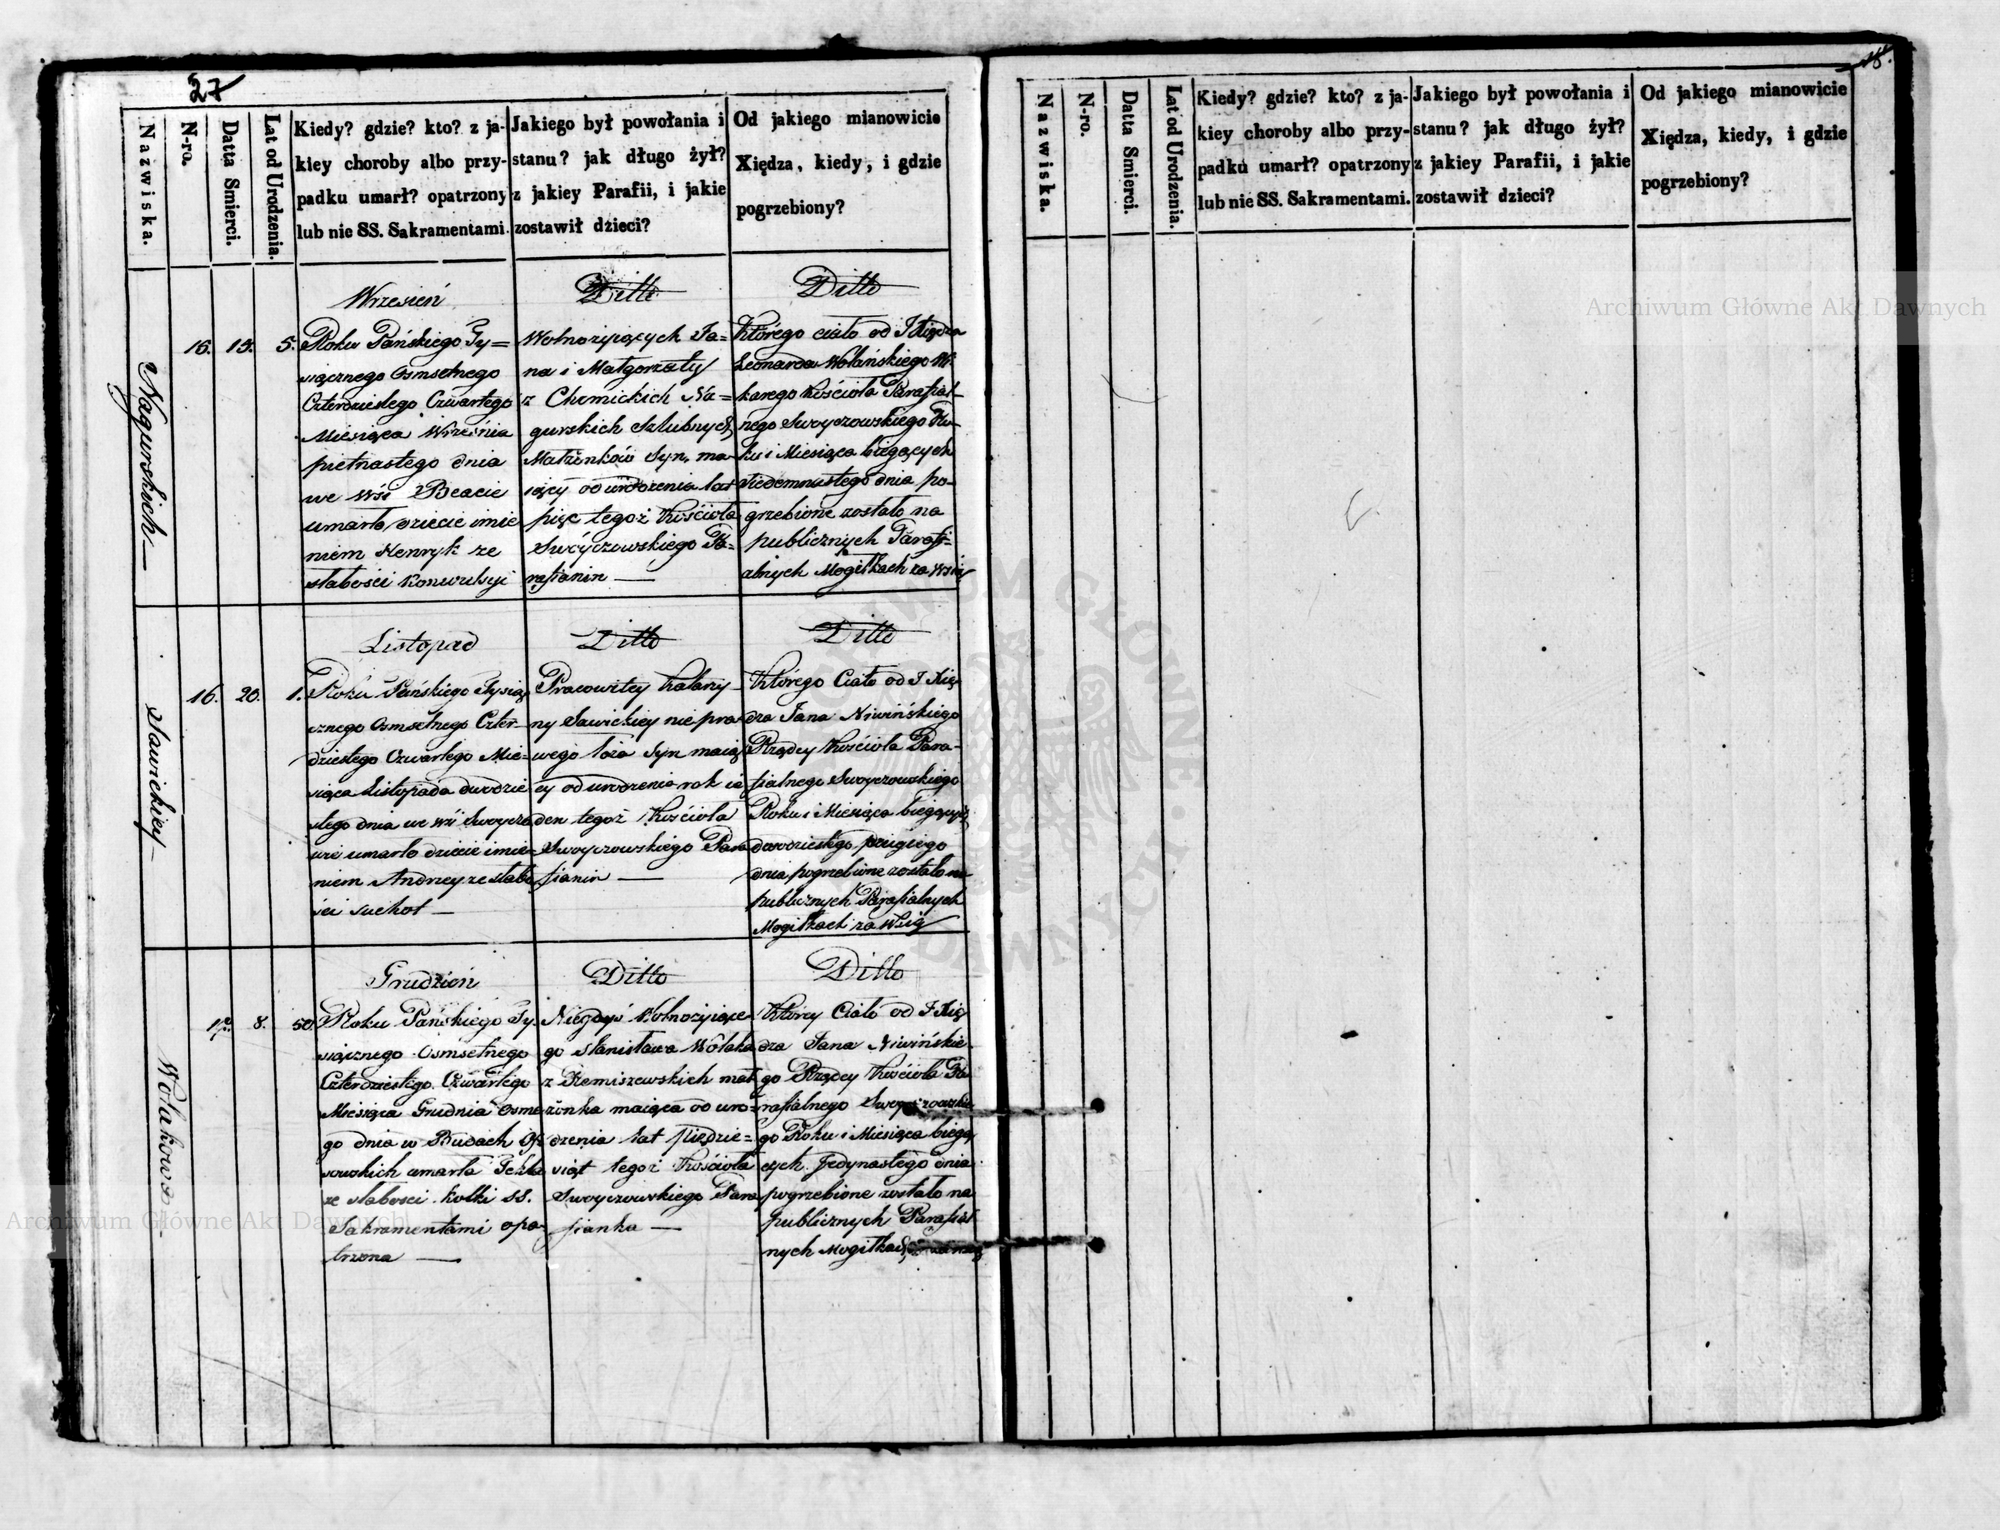 27
Nazwiska.
N-ro.
Datta Smierci.
Lat od Urodzenia.
Kiedy? gdzie? kto? z ja-
kiey choroby albo przy-
padku umarł? opatrzony
lub nie SS. Sakramentami.
Jakiego był powołania i
stanu? jak długo żył?
z jakiey Parafii, i jakie
zostawił dzieci?
Od jakiego mianowicie
Xiędza, kiedy, i gdzie
pogrzebiony?
Nagurskich
16. 15. 5.
Wrzesień
Roku Pańskiego Ty=
siącznego Osmsetnego
Czterdziestego Czwartego
Miesiąca Września
pietnastego dnia
we wsi
umarło dziecie imie
niem Henryk ze
słabości konwulsyi
Ditto
Wolnożyiących Ja=
na i Małgorzaty
z Chomickich Na=
gurskich Szlubnych
Małżonków Syn, ma-
iący od urodzenia lat
pięc tegoż Kościoła
Swóyczowskiego Pa=
rafianin —
Ditto
Którego ciało od J Xiędza
Leonarda Wolańskiego Wi
karego Kościoła Parafial-
nego Swoyczowskiego Ro-
ku i Miesiąca biegących
Siedemnastego dnia po-
grzebione zostało na
publicznych Parafi-
alnych Mogiłkach za Wsią
Sawickiey
16. 20. 1.
Listopad
Roku Pańskiego Tysią
cznego Osmsetnego Czter-
dziestego Czwartego Mie-
siąca Listopada dwudzie
stego dnia we wsi Swoyczo
wie umarło dziecie imie-
niem Andrzey ze słabo
ści suchot —
Ditto
Pracowitey Katarzy-
ny Sawickiey nie pra
wego łoża Syn maią
cy od urodzenia rok ie
den tegoż Kościoła
Swoyczowskiego Para
fianin —
Ditto
Którego Ciało od J Xię
dza Jana Niwińskiego
Rządcy Kościoła Para-
fialnego Swoyczowskiego
Roku i Miesiąca biegących
dwudziestego drugiego
dnia pogrzebione zostało na
publicznych Parafialnych
Mogiłkach za Wsią
Wolakowa
17. 8. 50.
Grudzień
Roku Pańskiego Ty
siącznego Osmsetnego
Czterdziestego Czwartego
Miesiąca Grudnia Osme
go dnia w Budach
umarła Tekla
ze słabosci kolki SS.
Sakramentami opa-
trzona —
Ditto
Niegdyś Wolnożyiące
go Stanisława Wolaka
z Ziemiszewskich mał
żonka maiąca od uro=
dzenia lat piędzie=
siąt tegoż Kościoła
Swoyczowskiego Para
fianka —
Ditto
Którey Ciało od J Xię
dza Jana Niwińskie
go Rządcy Kościoła Pa
rafialnego Swoyczowskie
go Roku i Miesiąca biegą
cych Jedynastego dnia
pogrzebione zostało na
publicznych Parafial
nych Mogiłkach za wsią
18.
Nazwiska.
N-ro.
Datta Smierci.
Lat od Urodzenia.
Kiedy? gdzie? kto? z ja-
kiey choroby albo przy-
padku umarł? opatrzony
lub nie SS. Sakramentami.
Jakiego był powołania i
stanu? jak długo żył?
z jakiey Parafii, i jakie
zostawił dzieci?
Od jakiego mianowicie
Xiędza, kiedy, i gdzie
pogrzebiony?
Archiwum Główne Akt Dawnych
Archiwum Główne Akt Dawnych